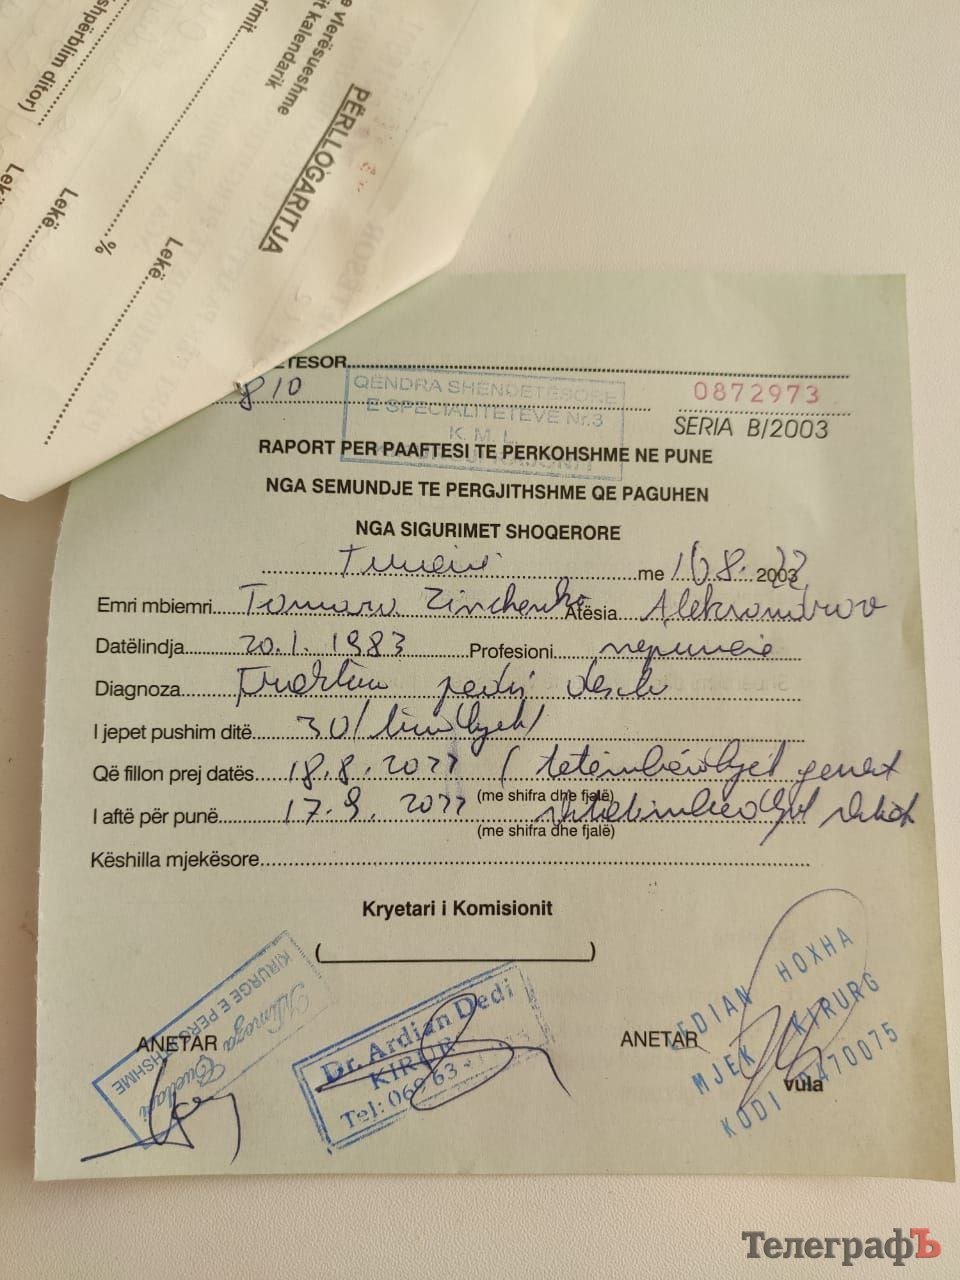 shpërblim ditor)
e vlerësueshme
it kalendarik
rimit.
PËRLLOGARITJA
Lekë
Lekë
%
Lekë
TESOR
810
QËNDRA SHENDETESORE
E SPECIALITETEVE Nr.3
K. M. L.
0872973
SERIA B/2003
RAPORT PER PAAFTESI TE PERKOHSHME NE PUNE
NGA SEMUNDJE TE PERGJITHSHME QE PAGUHEN
NGA SIGURIMET SHOQERORE
Tiranë me 16.8. 2003
Emri mbiemri Tamara Zinchenko Atësia Aleksandrov
Datëlindja 20.1.1983 Profesioni nepunese
Diagnoza
I jepet pushim ditë 30/
Që fillon prej datës 18.8.2022 (
(me shifra dhe fjalë)
I aftë për punë 17.9.2022
(me shifra dhe fjalë)
Këshilla mjekësore
Kryetari i Komisionit
( )
ANETAR
KIRURGE E PERGJITHSHME
Dr. Ardian Dedi
KIRURG
Tel: 069 63
ANETAR
LEDIAN HOXHA
MJEK KIRURG
KODI 0470075
vula
ТелеграфЪ